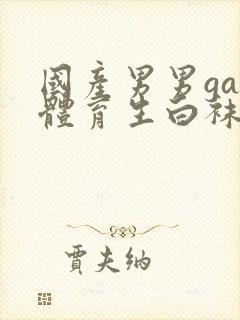 國產男男ga
體育生白袜
賈夫纳